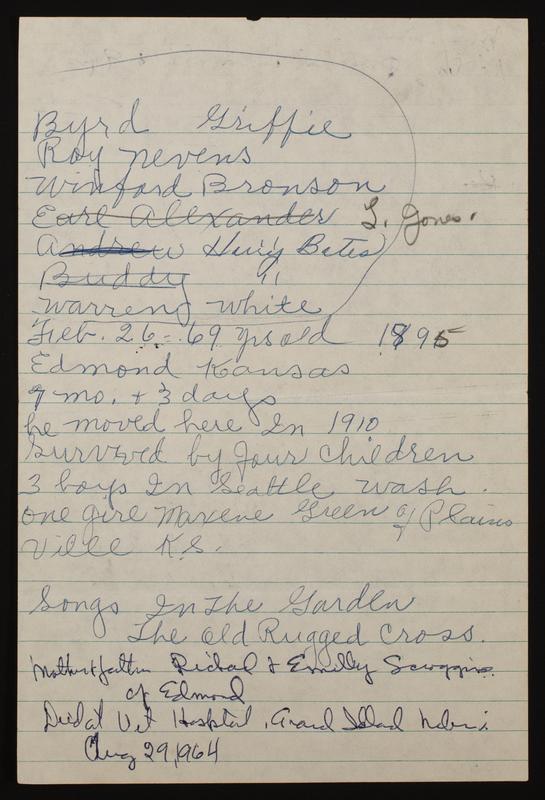 Byrd Griffie
Roy Nevens
Winford Bronson
Earl Allxander L. Jones.
Andrew Harry Bates
Buddy "
Warreng White
Feb. 26 - 69 yrs old 1895
Edmond Kansas
9 mo. + 3 days
he moved here In 1910
Survved by four children
3 boys In Seattle Wash.
one girl Maxene Green of Plains
Ville KS.
Songs In The Garden
The old Rugged Cross.
Mother & father Richal & Emilly Scroggins.
of Edmond
Died at Vet Hosptal, Grand Island Nebr.
Aug 29, 1964